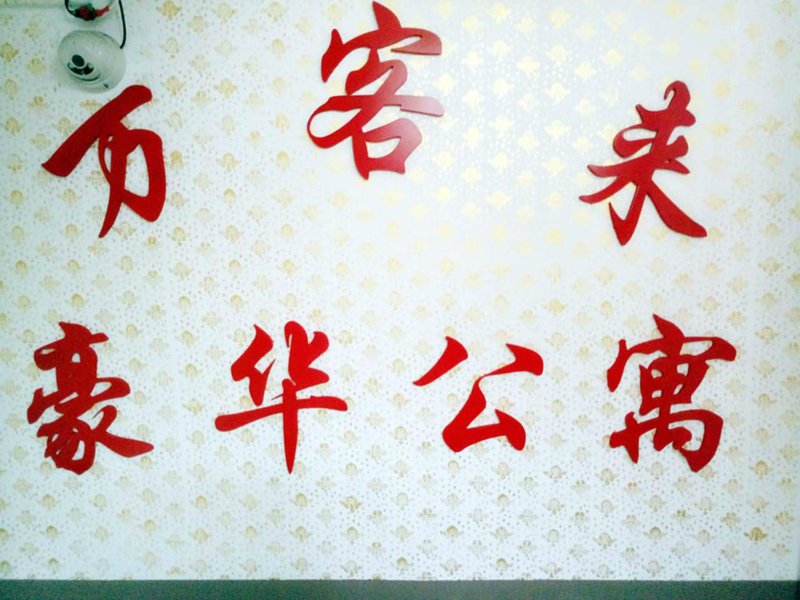 万客来
豪华公寓